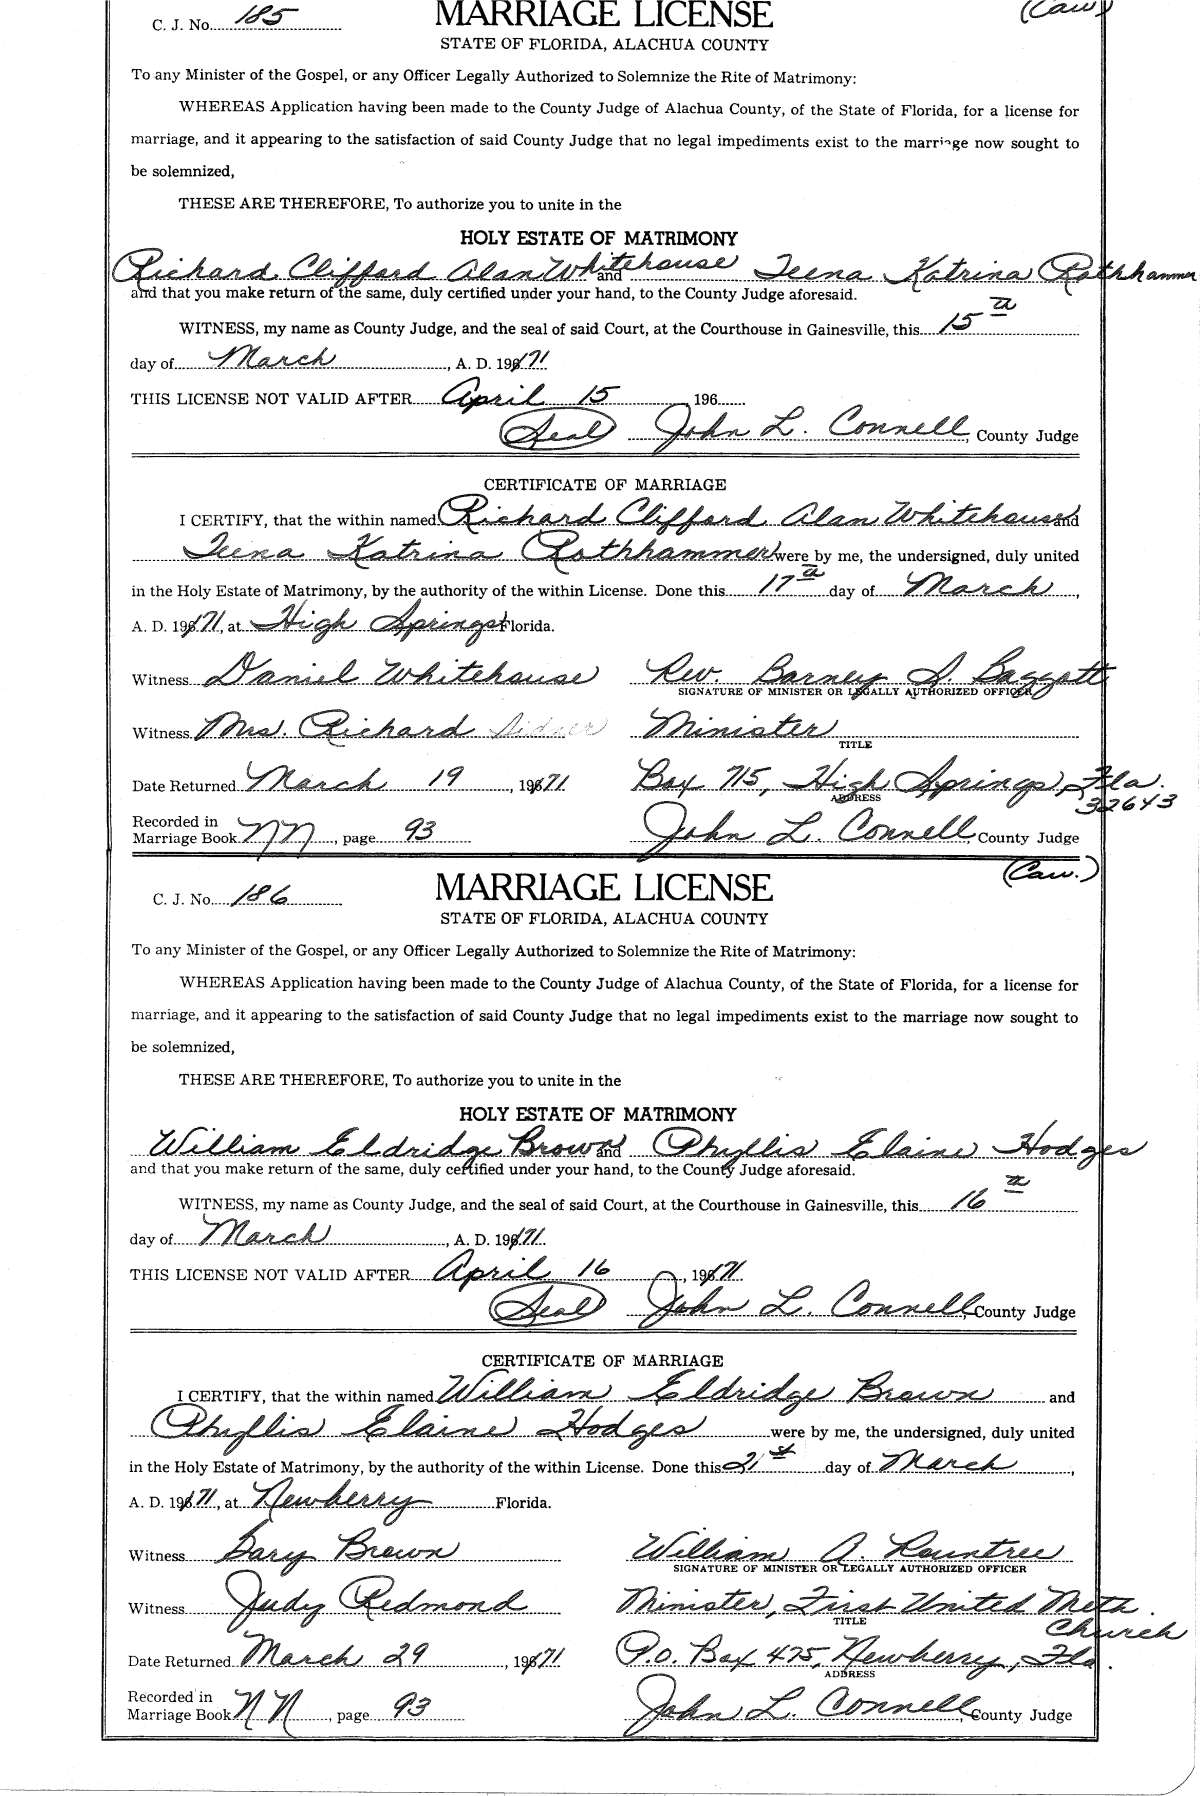 C. J. No. 185 MARRIAGE LICENSE (Caw)
STATE OF FLORIDA, ALACHUA COUNTY
To any Minister of the Gospel, or any Officer Legally Authorized to Solemnize the Rite of Matrimony:
WHEREAS Application having been made to the County Judge of Alachua County, of the State of Florida, for a license for
marriage, and it appearing to the satisfaction of said County Judge that no legal impediments exist to the marriage now sought to
be solemnized,
THESE ARE THEREFORE, To authorize you to unite in the
HOLY ESTATE OF MATRIMONY
Richard Clifford Alan Whitehouse and Teena Katrina Rothhammer
and that you make return of the same, duly certified under your hand, to the County Judge aforesaid.
WITNESS, my name as County Judge, and the seal of said Court, at the Courthouse in Gainesville, this 15th
day of March, A. D. 1971.
THIS LICENSE NOT VALID AFTER April 15, 196
Seal John L. Connell, County Judge
CERTIFICATE OF MARRIAGE
I CERTIFY, that the within named Richard Clifford Alan Whitehouse and
Teena Katrina Rothhammer were by me, the undersigned, duly united
in the Holy Estate of Matrimony, by the authority of the within License. Done this 17th day of March,
A. D. 1971, at High Springs Florida.
Witness Daniel Whitehouse Rev. Barney S. Baggott
SIGNATURE OF MINISTER OR LEGALLY AUTHORIZED OFFICER
Witness Mrs. Richard Sidner Minister
TITLE
Date Returned March 19, 1971 Box 715, High Springs, Fla.
ADDRESS 32643
Recorded in
Marriage Book NN, page 93 John L. Connell, County Judge
C. J. No. 186 MARRIAGE LICENSE (Caw.)
STATE OF FLORIDA, ALACHUA COUNTY
To any Minister of the Gospel, or any Officer Legally Authorized to Solemnize the Rite of Matrimony:
WHEREAS Application having been made to the County Judge of Alachua County, of the State of Florida, for a license for
marriage, and it appearing to the satisfaction of said County Judge that no legal impediments exist to the marriage now sought to
be solemnized,
THESE ARE THEREFORE, To authorize you to unite in the
HOLY ESTATE OF MATRIMONY
William Eldridge Brown and Phyllis Elaine Hodges
and that you make return of the same, duly certified under your hand, to the County Judge aforesaid.
WITNESS, my name as County Judge, and the seal of said Court, at the Courthouse in Gainesville, this 16th
day of March, A. D. 1971.
THIS LICENSE NOT VALID AFTER April 16, 1971
Seal John L. Connell, County Judge
CERTIFICATE OF MARRIAGE
I CERTIFY, that the within named William Eldridge Brown and
Phyllis Elaine Hodges were by me, the undersigned, duly united
in the Holy Estate of Matrimony, by the authority of the within License. Done this 21st day of March,
A. D. 1971, at Newberry Florida.
Witness Gary Brown William A. Rountree
SIGNATURE OF MINISTER OR LEGALLY AUTHORIZED OFFICER
Witness Judy Redmond Minister, First United Meth.
TITLE Church
Date Returned March 29, 1971 P.O. Box 475, Newberry, Fla.
ADDRESS
Recorded in
Marriage Book NN, page 93 John L. Connell, County Judge